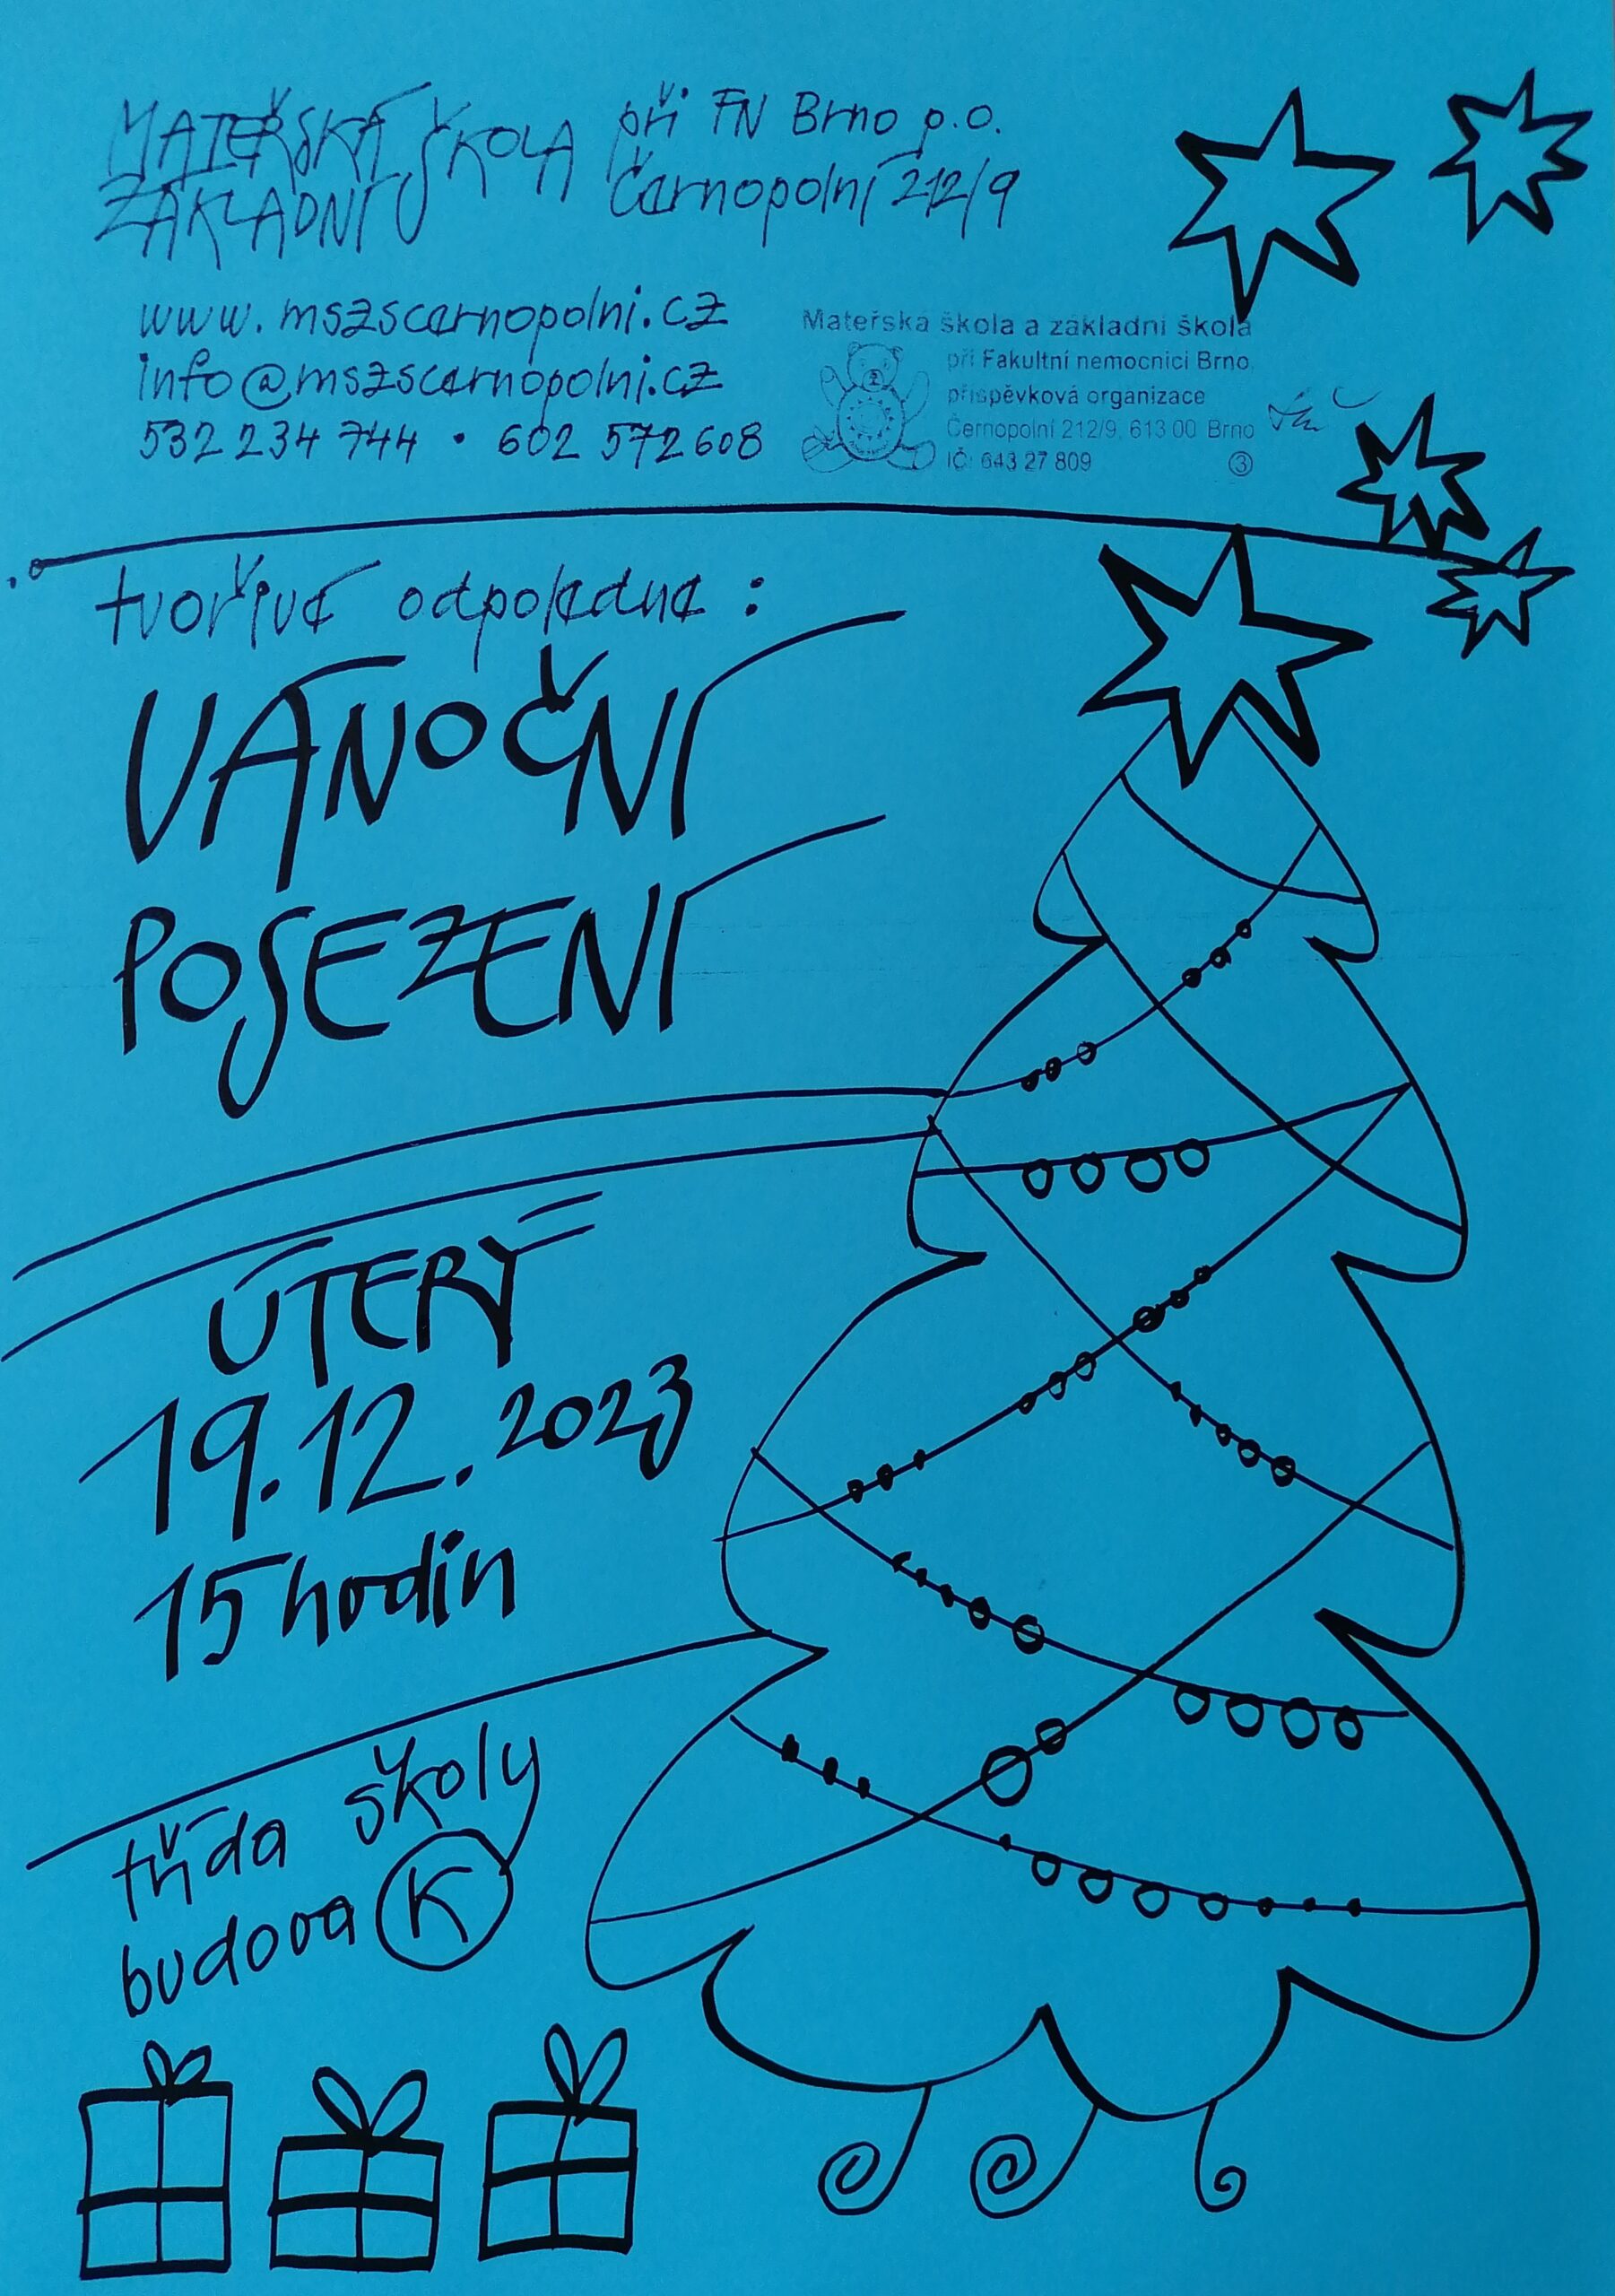 MATEŘSKÁ ŠKOLA při FN Brno p.o.
ZÁKLADNÍ Černopolní 212/9
www.mszscernopolni.cz
info@mszscernopolni.cz
532 234 744 • 602 572 608
Mateřská škola a základní škola
při Fakultní nemocnici Brno,
příspěvková organizace
Černopolní 212/9, 613 00 Brno
IČ: 643 27 809
3
tvořivé odpoledne:
VÁNOČNÍ
POSEZENÍ
ÚTERÝ
19.12.2023
15 hodin
třída školy
budova K